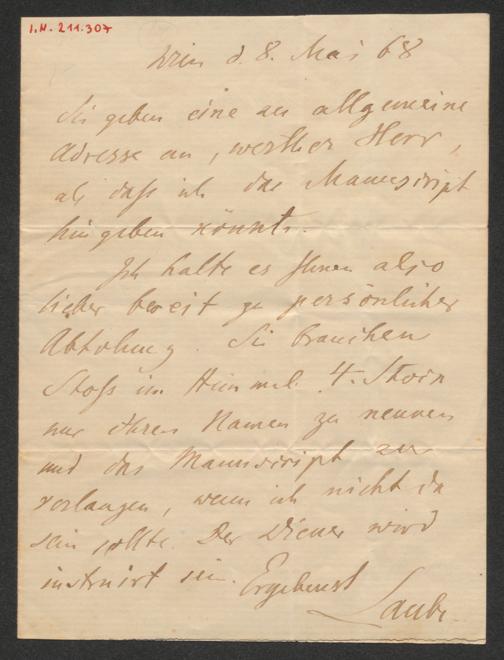 I.N. 211.307
Wien d. 8. Mai 68
Sie geben eine zu allgemeine
Adresse an, werther Herr,
als daß ich das Manuscript
hingeben könnte.
Ich halte es Ihnen also
lieber bereit zu persönlicher
Abholung. Sie brauchen
Stoß im Himmel 4. Stock
nur Ihren Namen zu nennen
und das Manuscript zu
verlangen, wenn ich nicht da
sein sollte. Der Diener wird
instruirt sein. Ergebenst
Laube